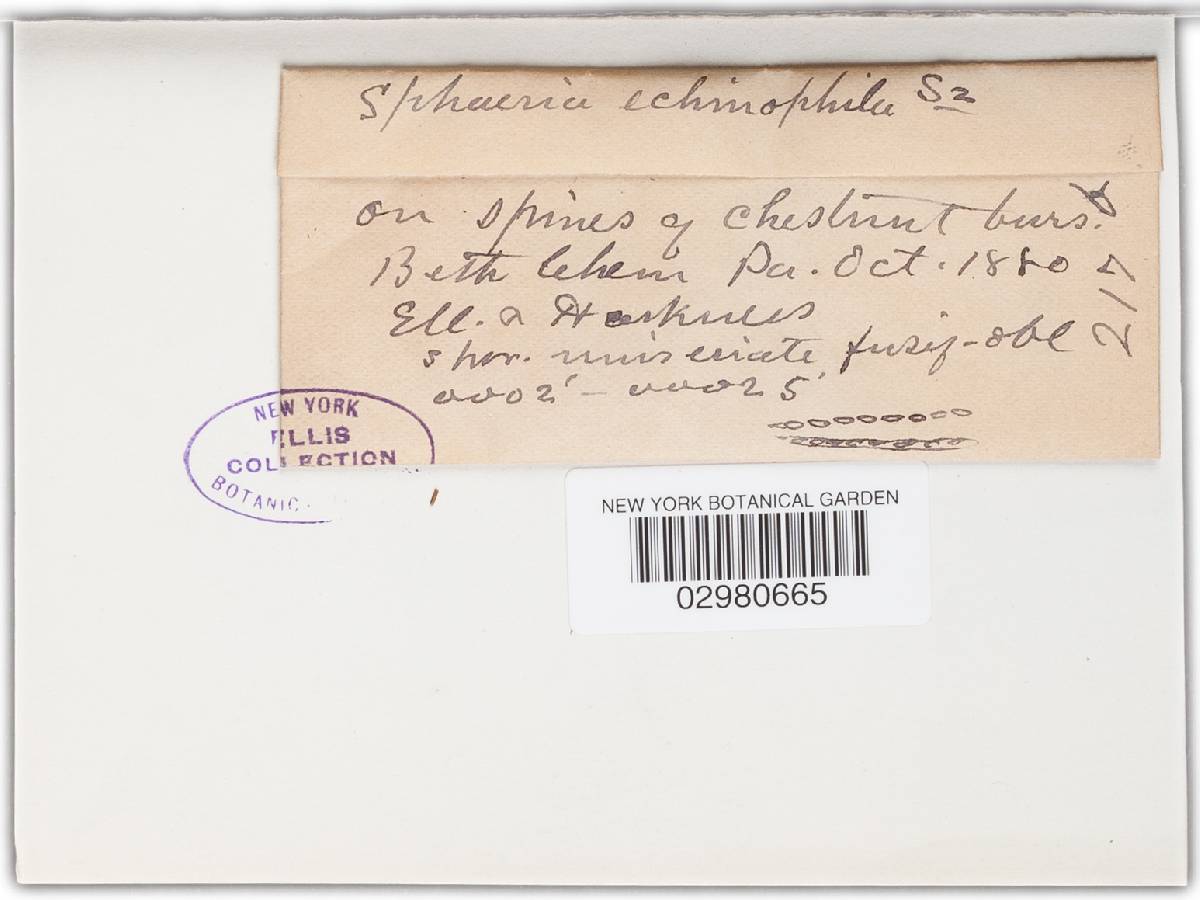 Sphaeria echinophila Sz
on spines of chestnut burs.
Bethlehem Pa. Oct. 1880
Ell. & Harkness
spor. uniseriate fusif-obl
0002' - 00025'
217
NEW YORK
ELLIS
COLLECTION
BOTANIC
NEW YORK BOTANICAL GARDEN
02980665